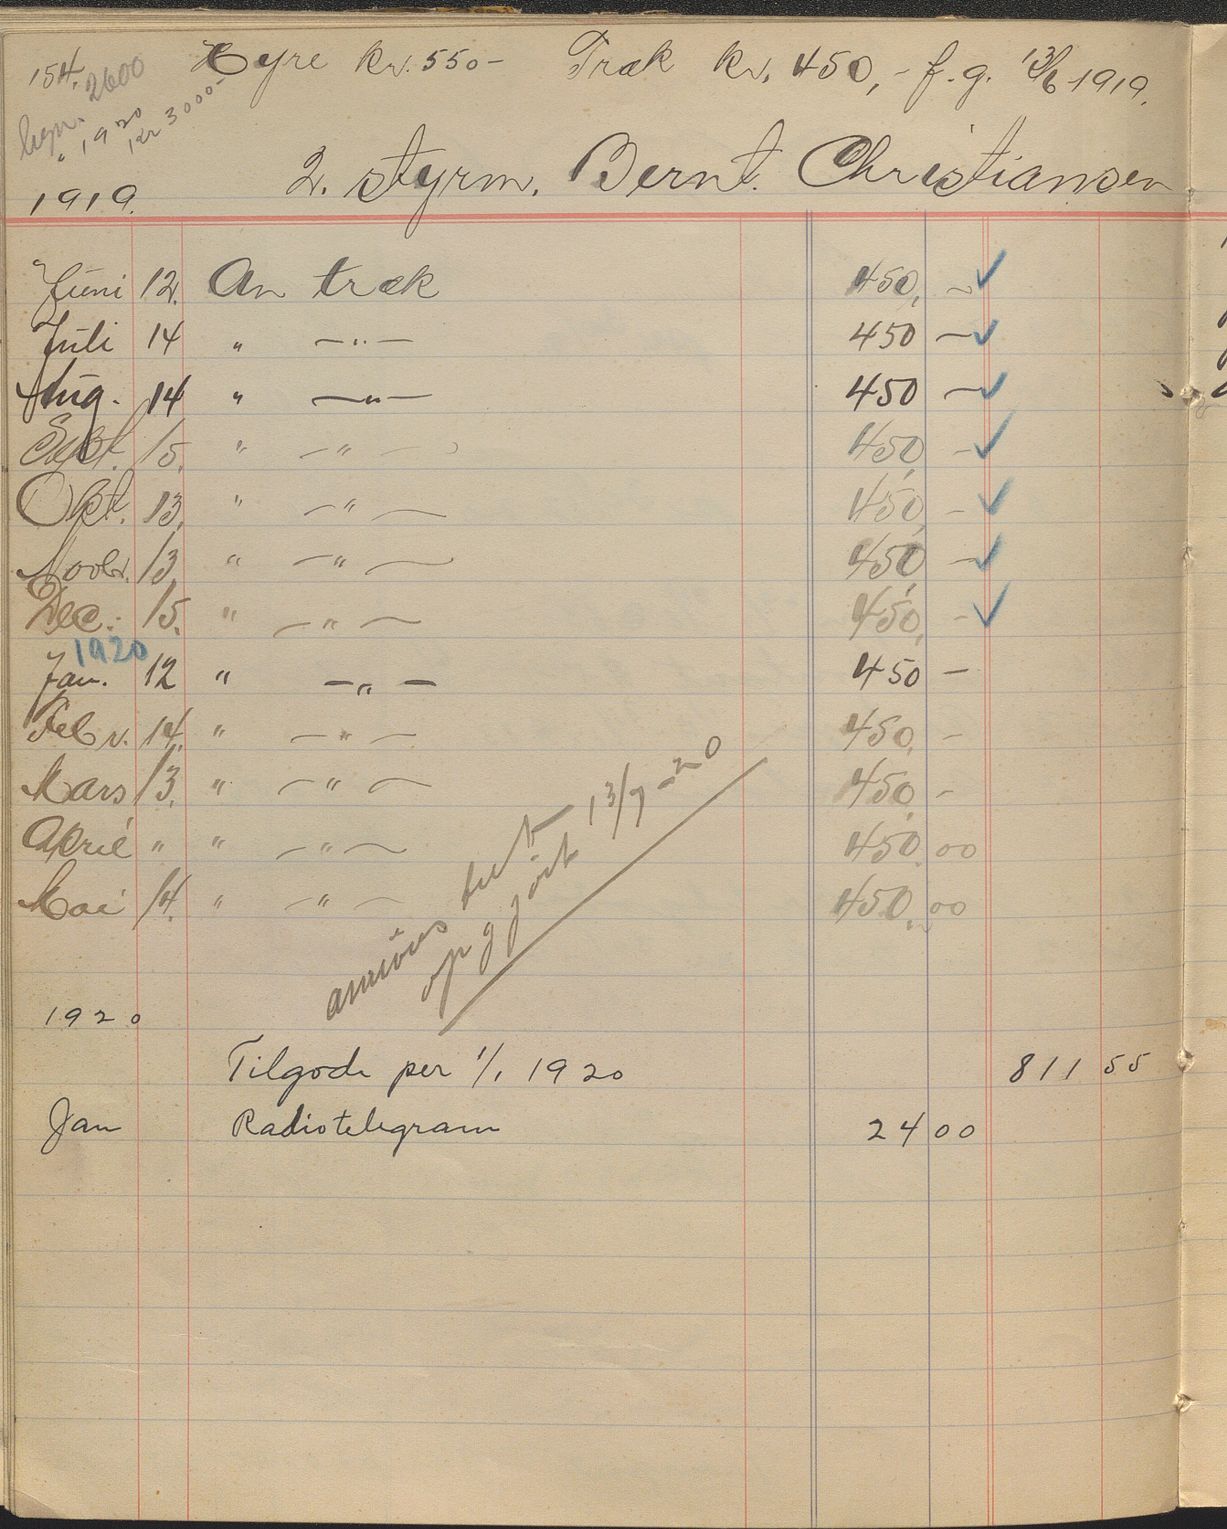 154. Hyre kr. 550- Træk kr. 450,- f. g. 13/6 1919.
2600
" 1920 kr 3000-
1919. 2. styrm. Bernt Christiansen
Juni 12. An træk 450, -
Juli 14 " -"- 450 -
Aug. 14 " -"- 450 -
Sept. 15. " -"- 450, -
Okt. 13. " -"- 450, -
Novbr. 13 " -"- 450, -
Dec. 15. " -"- 450, -
1920
Jan. 12 " -"- 450 -
Febr. 14. " -"- 450, -
Mars 13. " -"- 450, -
April " " -"- 450, 00
Mai 14. " -"- 450, 00
opgjort 13/7 - 20
1920
Tilgode per 1/1 1920 811 55
Jan Radiotelegram 24 00